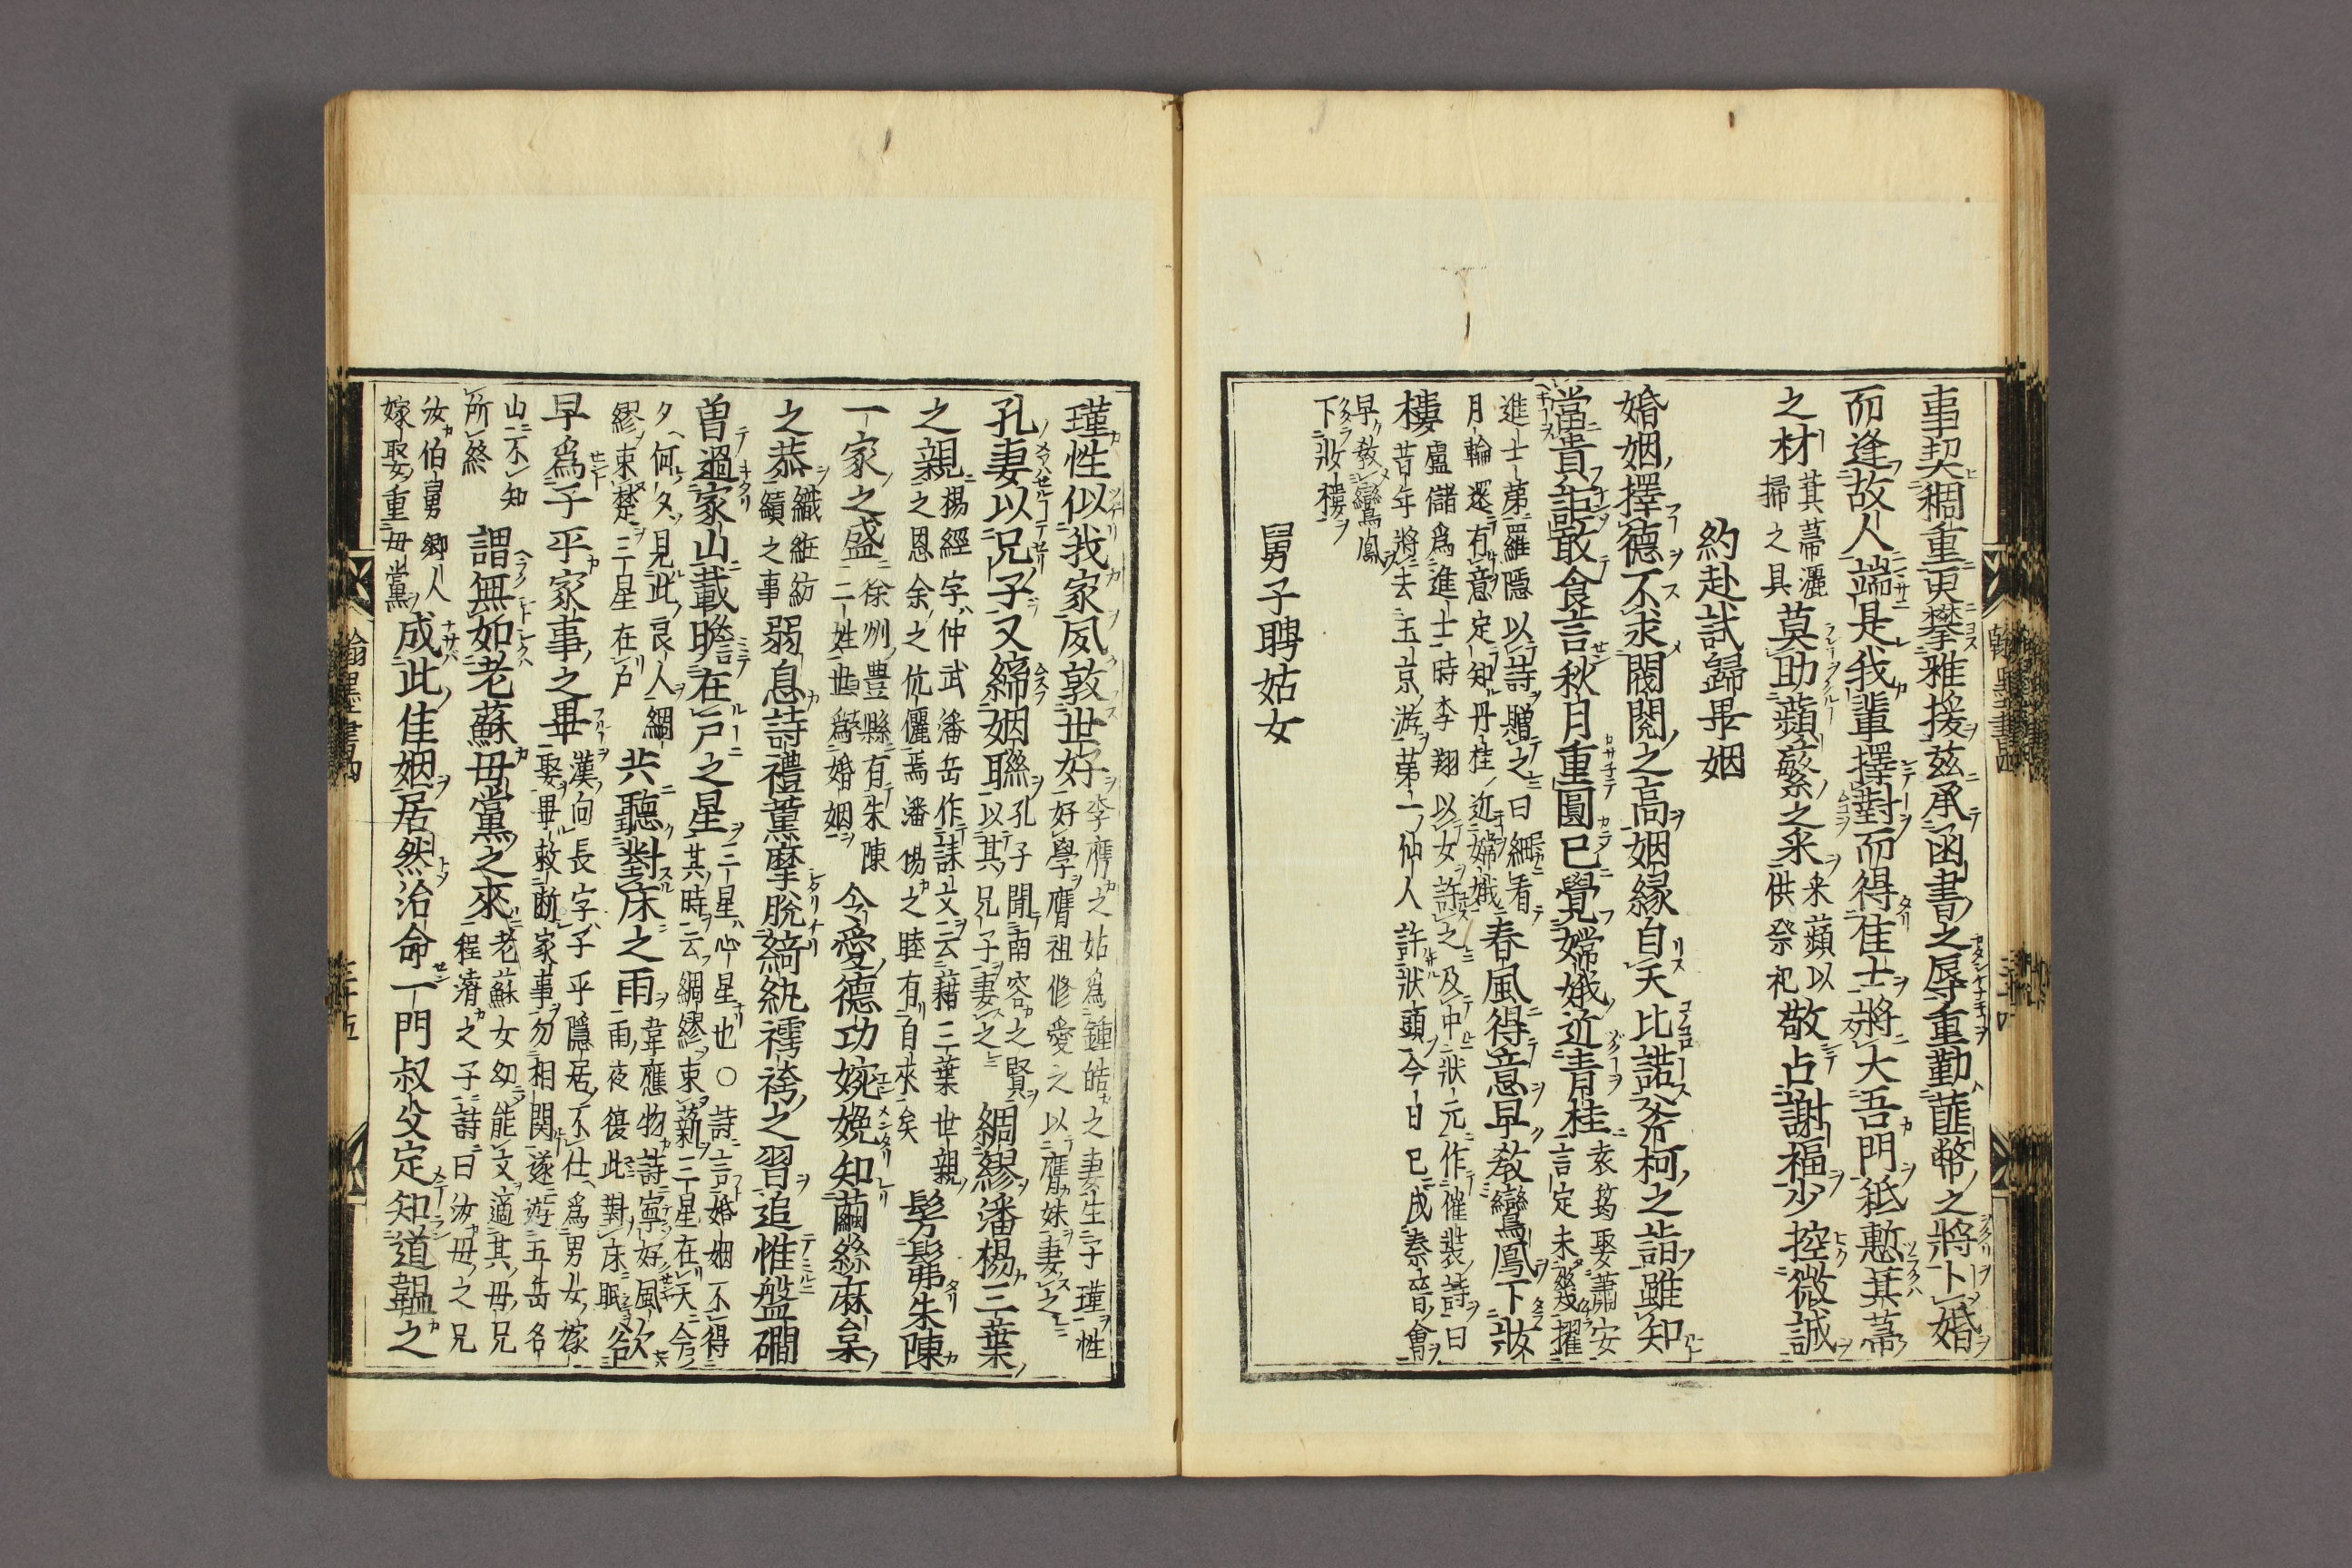 事契稠重更攀雅援茲承函書之辱重勤菲幣之將卜婚
而逢故人端是我輩擇對而得佳士將大吾門秪慙箕菷
之材箕菷灑掃之具莫助蘋蘩之采采蘋以供祭祀敬占謝福少控微誠
約赴試歸畢姻
婚姻擇德不求閥閱之高姻緣自天比諾斧柯之詣雖知
當貴詎敢食言秋月重圓已覺嫦娥近青桂袁筠娶蕭安言定未幾擢
進士第羅隱以詩贈之曰細看月輪還有意定知丹桂近嫦娥春風得意早教鸞鳳下妝
樓盧儲爲進士時李翔以女許之及中狀元作催裝詩曰昔年將去玉京游第一仙人許狀頭今日已成秦晉會
早教鸞鳳下妝樓
舅子聘姑女
瑾性似我家夙敦世好李膺之姑爲鍾皓之妻生子瑾性好學膺祖修愛之以膺妹妻之
孔妻以兄子又締姻聯孔子聞南容之賢以其兄子妻之綢繆潘楊三葉
之親楊經字仲武潘岳作誄文云藉三葉世親之恩余之伉儷焉潘楊之睦有自來矣髣髴朱陳
一家之盛徐州豐縣有朱陳二姓世爲婚姻令愛德功婉娩知繭絲麻枲
之恭織紝紡績之事弱息詩禮薰摩脫綺紈襦袴之習追惟盤磵
曾過家山載瞻在戶之星三星心星也○詩言婚姻不得其時云綢繆束薪三星在天今
夕何夕見此良人綢繆束楚三星在戶共聽對床之雨韋應物詩寧好風欲雨夜復此對床眠
早爲子平家事之畢漢向長字子平隱居不仕爲男女嫁娶畢敕斷家事勿相関遂遊五岳名
山不知所終謂無如老蘇母黨之來老蘇女幼能文適其母兄程濬之子詩曰汝母之兄
汝伯舅鄉人嫁娶重母黨成此佳姻居然治命一門叔父定知道韞之